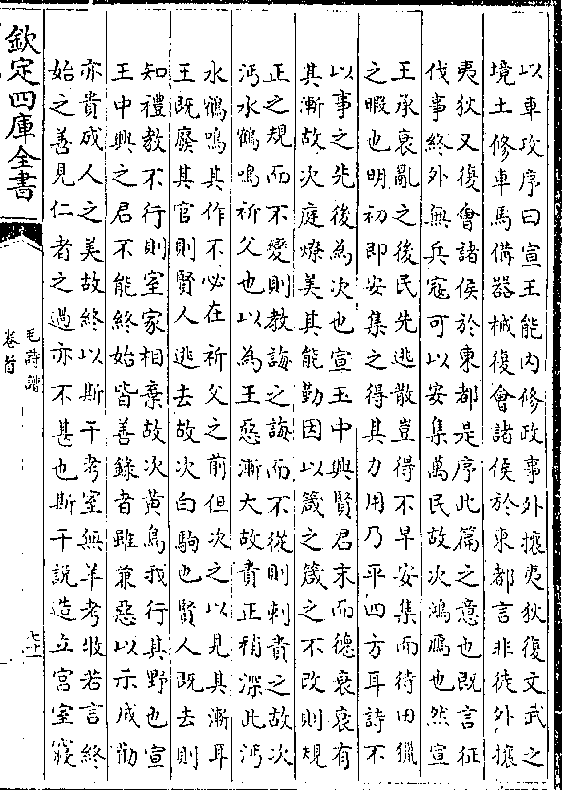 以車攻序曰宣王能内修政事外攘夷狄復文武之
境土修車馬備器械復會諸侯於東都言非徒外攘
夷狄又復會諸侯於東都是序此篇之意也既言征
伐事終外無兵寇可以安集萬民故次鴻鴈也然宣
王承衰亂之後民先逃散豈得不早安集而待田獵
之暇也明初即安集之得其力用乃平四方耳詩不
以事之先後為次也宣王中興賢君末而德衰衰有
其漸故次庭燎美其能勤因以箴之箴之不改則規
正之規而不變則教誨之誨而不從則刺責之故次
沔水鶴鳴祈父也以為王惡漸大故責正稍深此沔
水鶴鳴其作不必在祈父之前但次之以見其漸耳
王既廢其官則賢人逃去故次白駒也賢人既去則
知禮教不行則室家相棄故次黄鳥我行其野也宣
王中興之君不能終始皆善錄者雖兼惡以示戒勸
亦貴成人之美故終以斯干考室無羊考牧若言終
始之善見仁者之過亦不甚也斯干說造立宫室寢
欽定四庫全書
毛詩譜
卷首